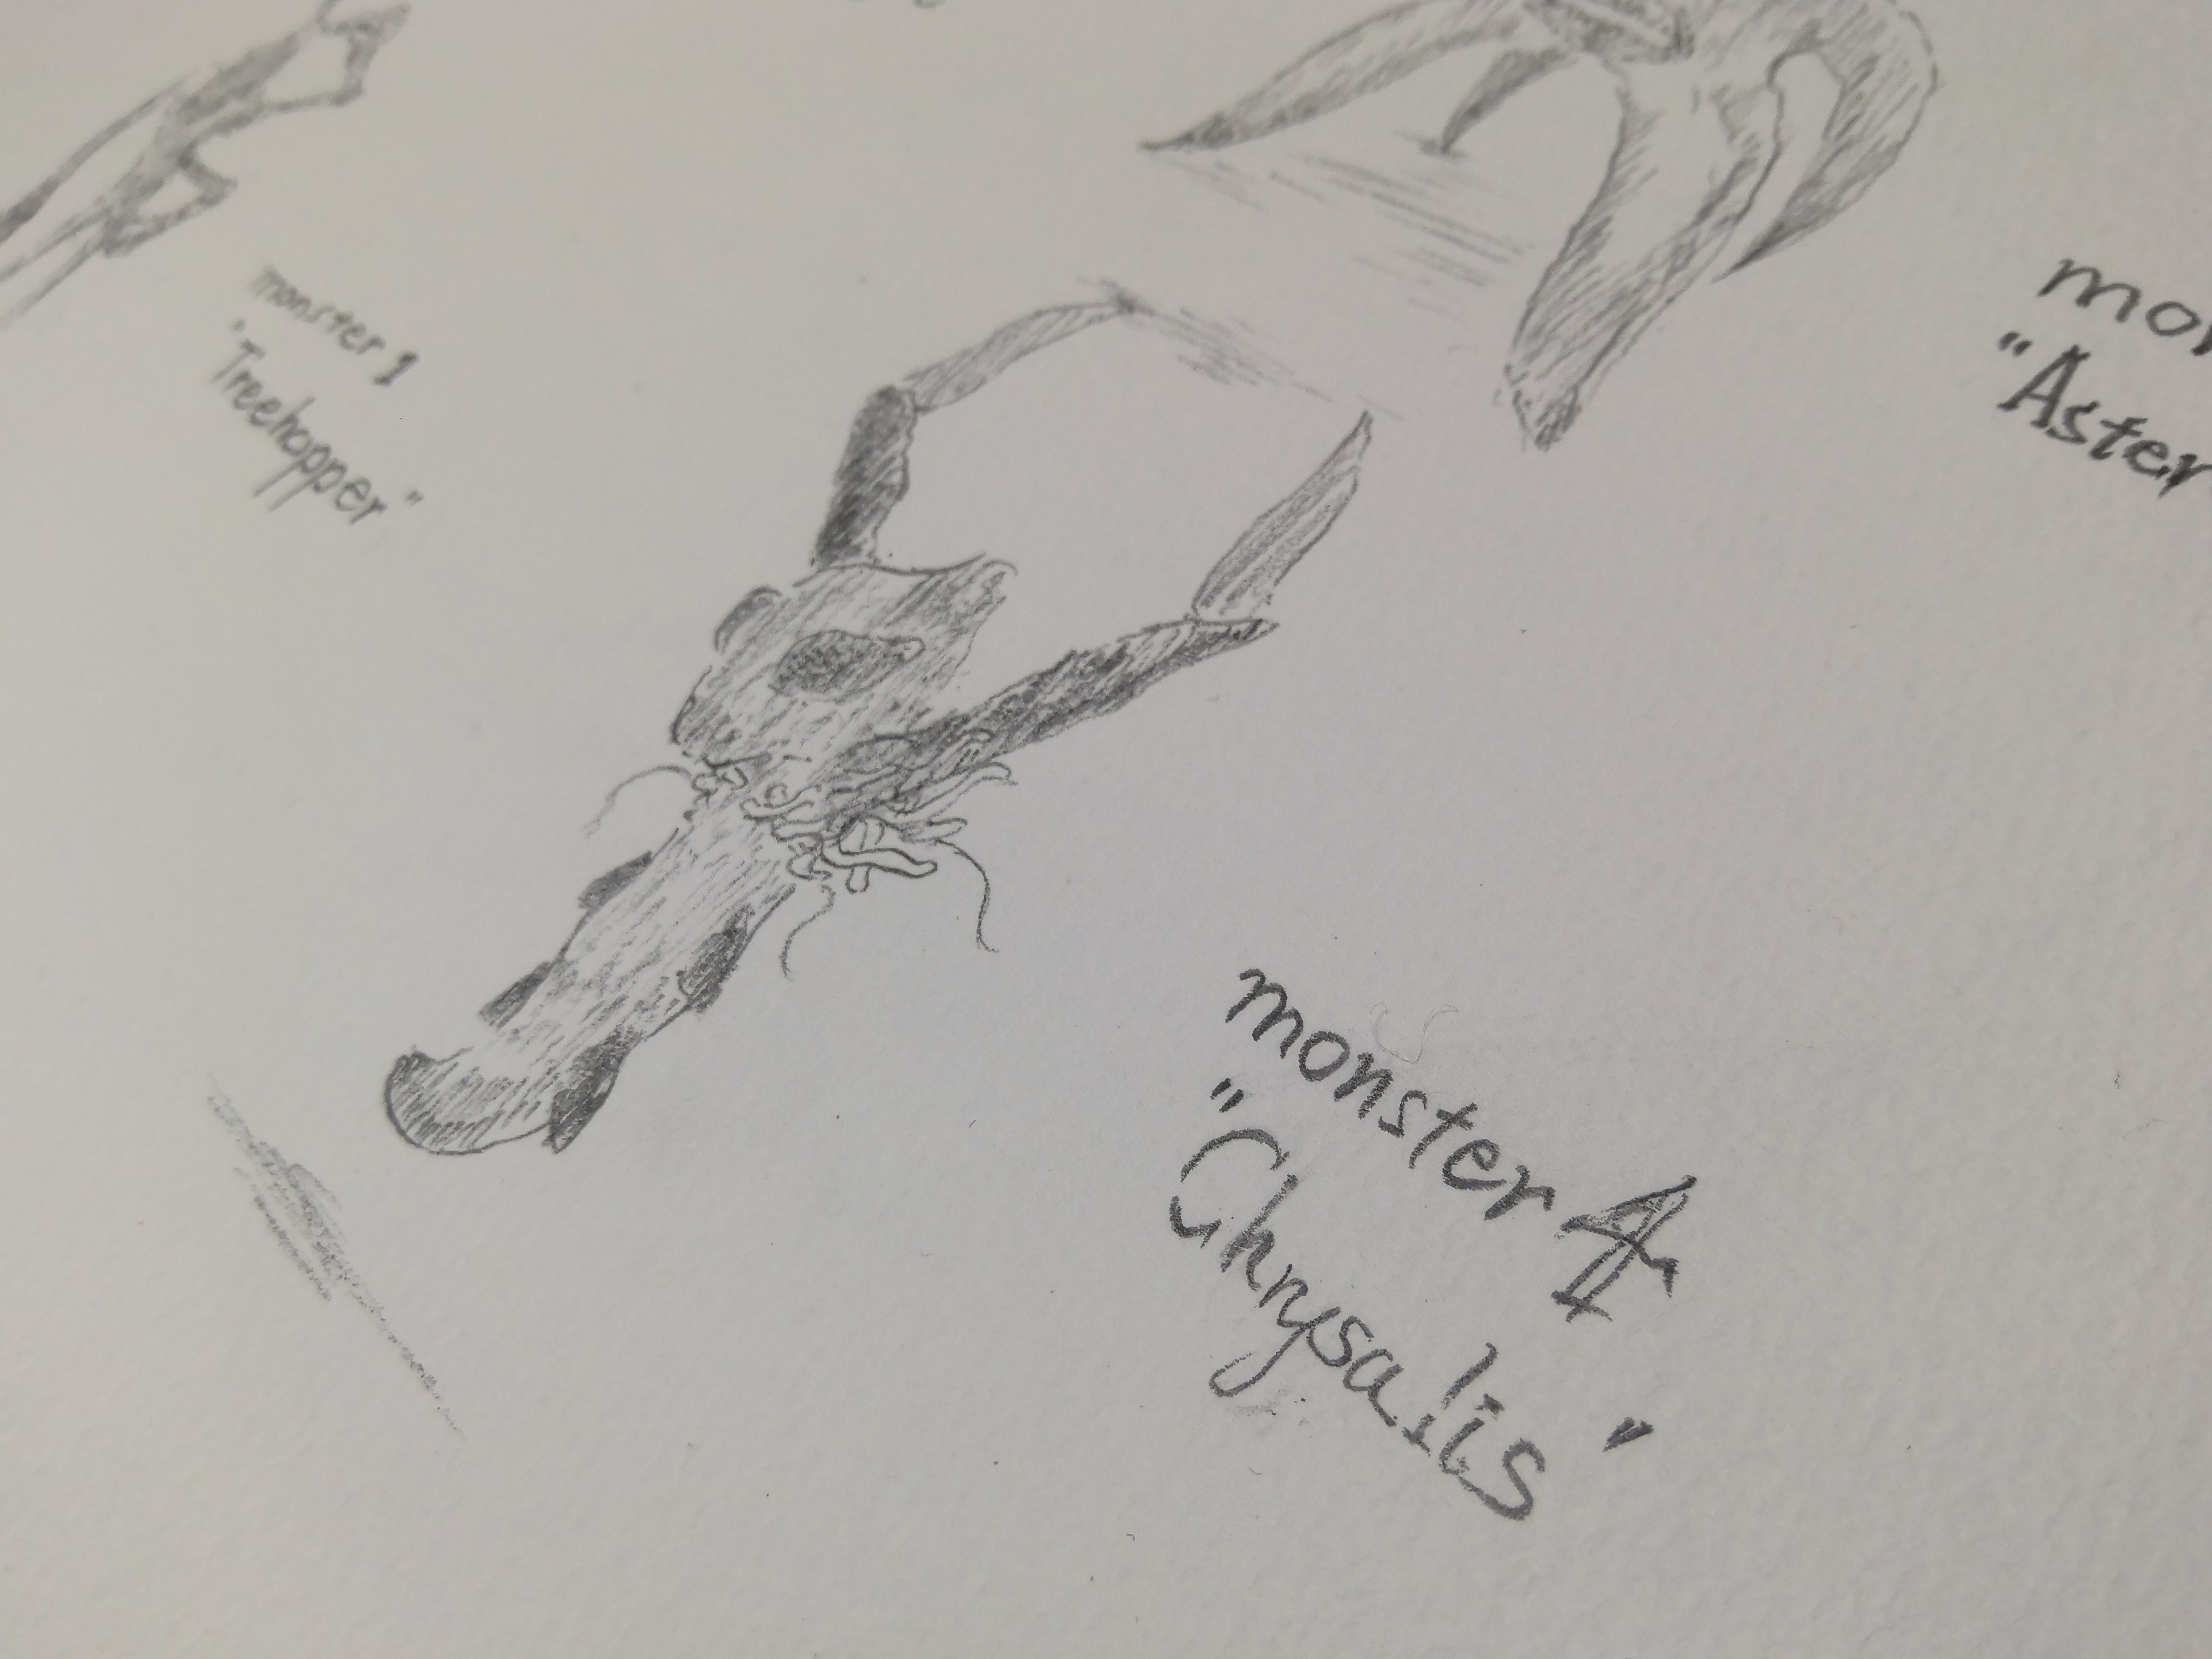 monster 1
"Treehopper"
"Aster
monster 4
"Chrysalis"